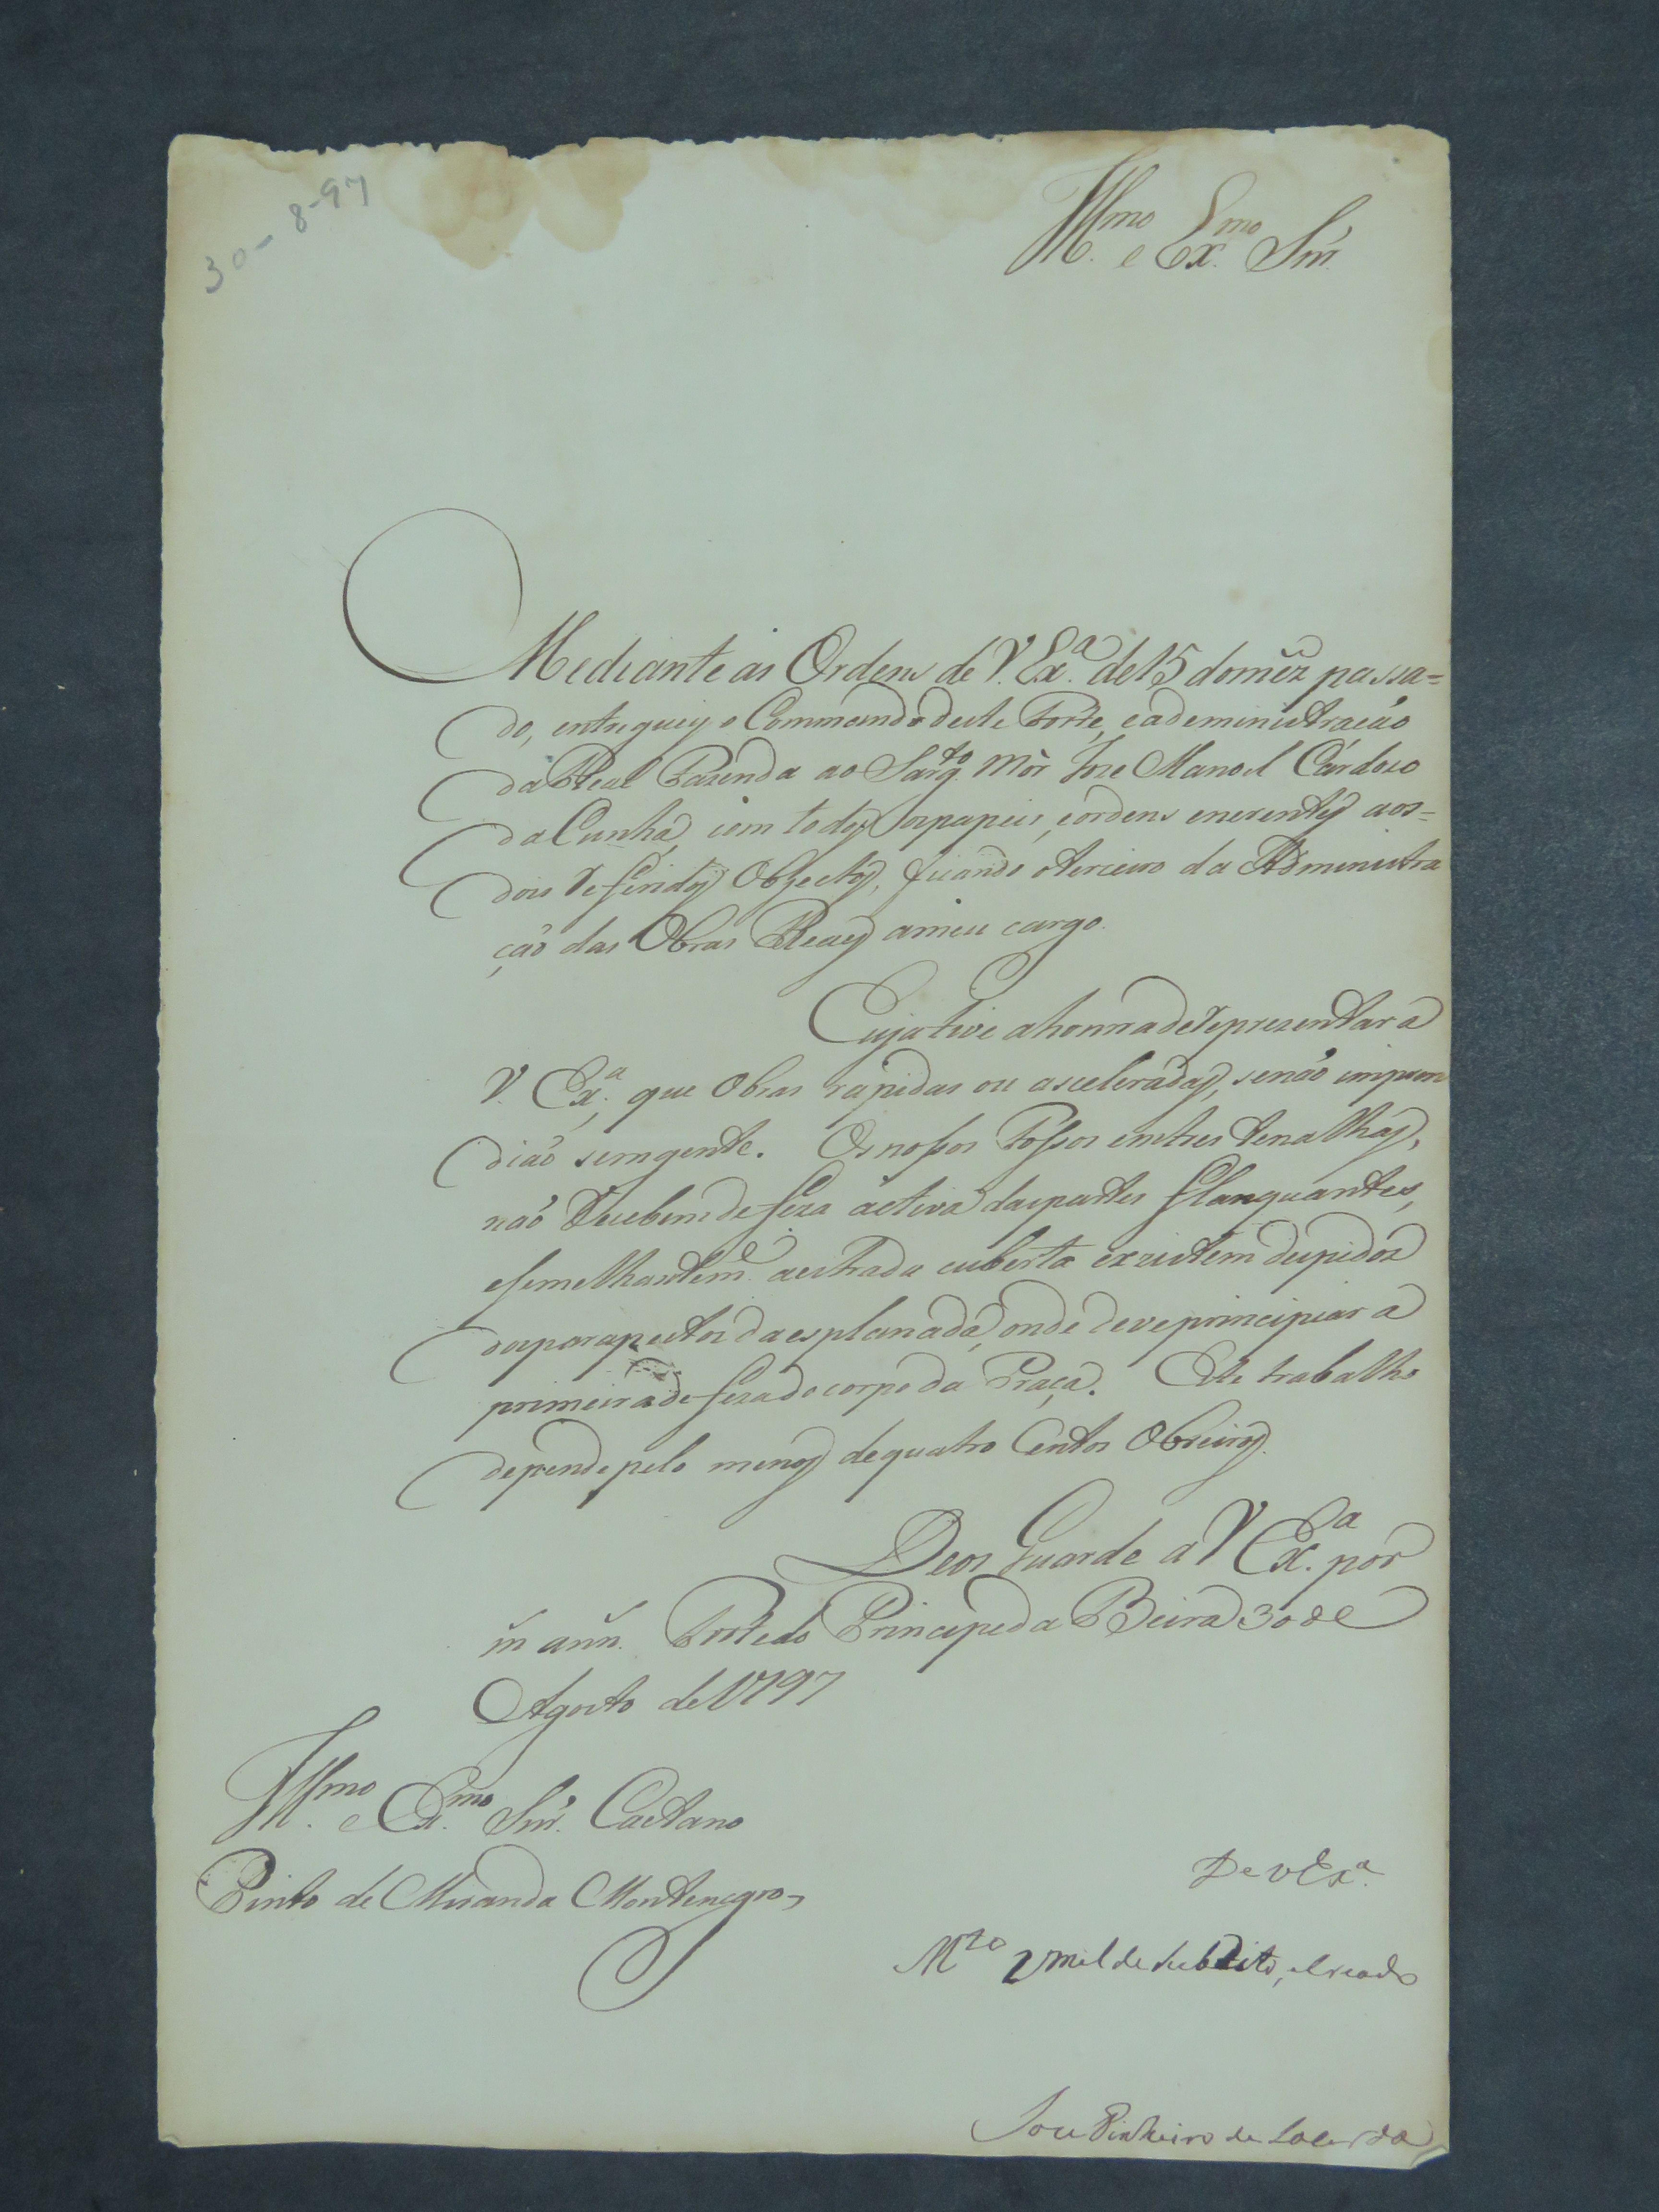 30-8-97
Ill.mo e Ex.mo Snr.
Mediante as Ordens de V. Ex.a de 15 do mez passa=
do, entreguey o Commando deste Forte, e adeministracão
da Real Fazenda ao Sarg.to Mór Joze Manoel Cardozo
da Cunha, com todos os papeis, e ordens enerentes aos=
dois referidos Objectos, ficando o terceiro da Administra
ção das Obras Reays a meu cargo.
Cuja tive a honra de representar a
V. Ex.a, que Obras rapidas ou asceleradas, senão imprem
dião sem gente. Os nossos Fossos entres tenalhas,
não recebem defeza activa das partes flanquantes,
e semelhantem.e aestrada cuberta exzistem dispidoz
dos parapeitos da esplanada, onde deve principiar a
primeira defeza do corpo da Praça. Este trabalho
depende pelo menos de quatro Centos Obreiros.
Deos Guarde a V Ex.a por
m ann. Forte do Principe da Beira 30 de
Agosto de 1797
Ill.mo e Ex.mo Snr. Caetano
Pinto de Miranda Montenegro,
De V Ex.a
M.to umilde subdito, e creado
Joze Pinheiro de Lacerda